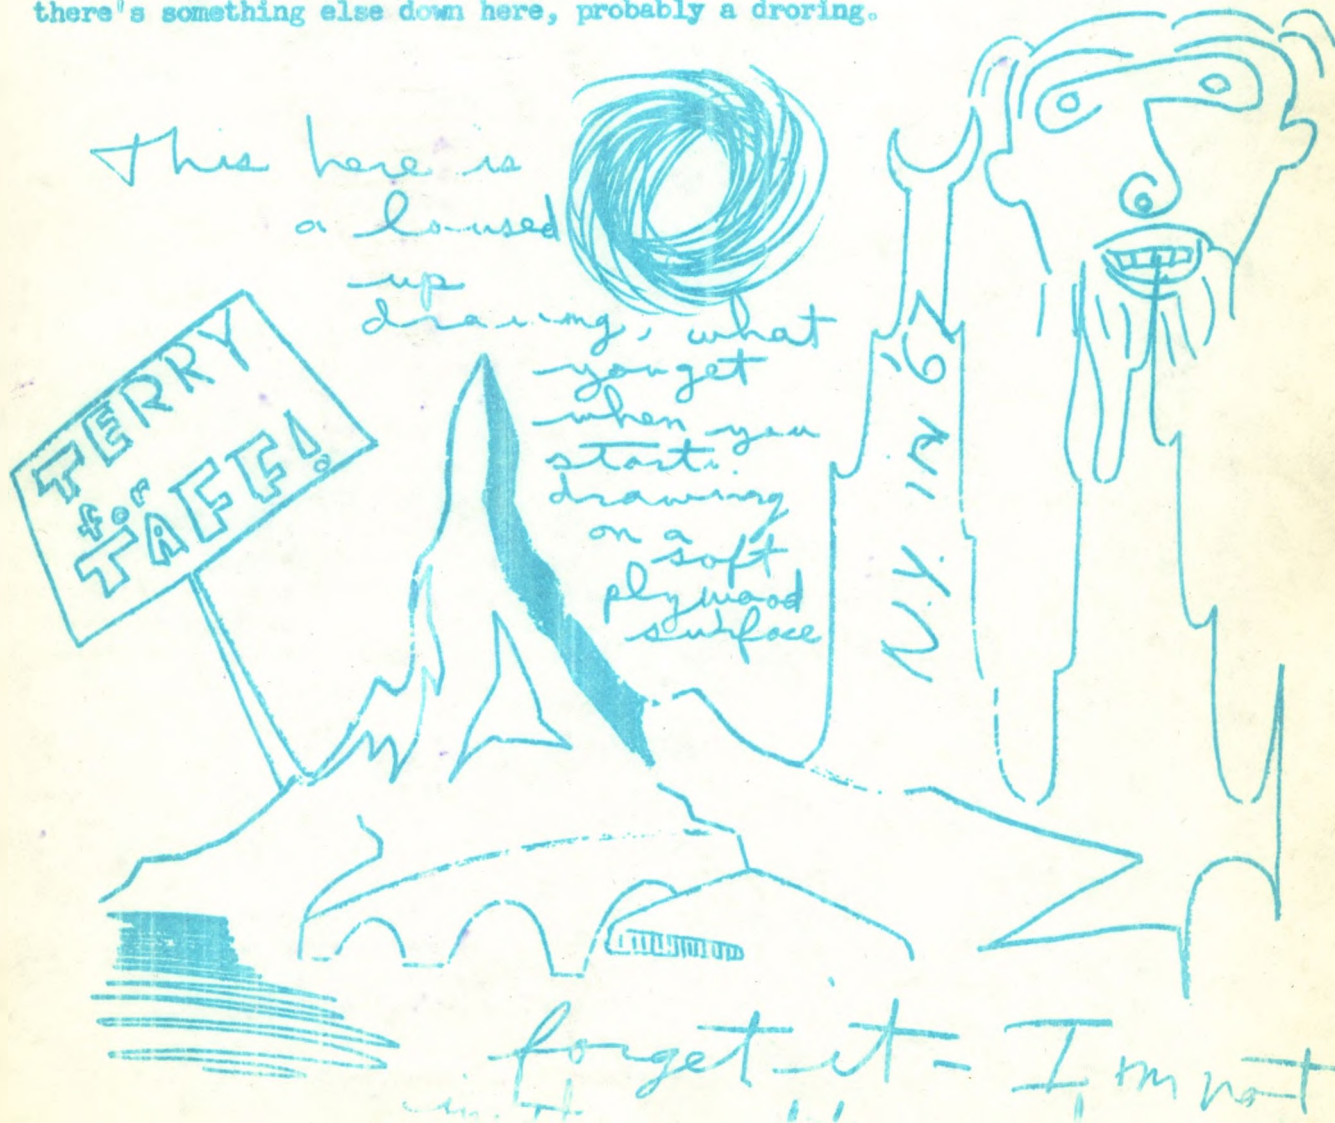 there's something else down here, probably a droring.
This here is
a loused
up
drawing, what
you get
when you
start
drawing
on a
soft
plywood
surface
TERRY
for
TAFF!
N.Y. IN '67
forget it - I am not